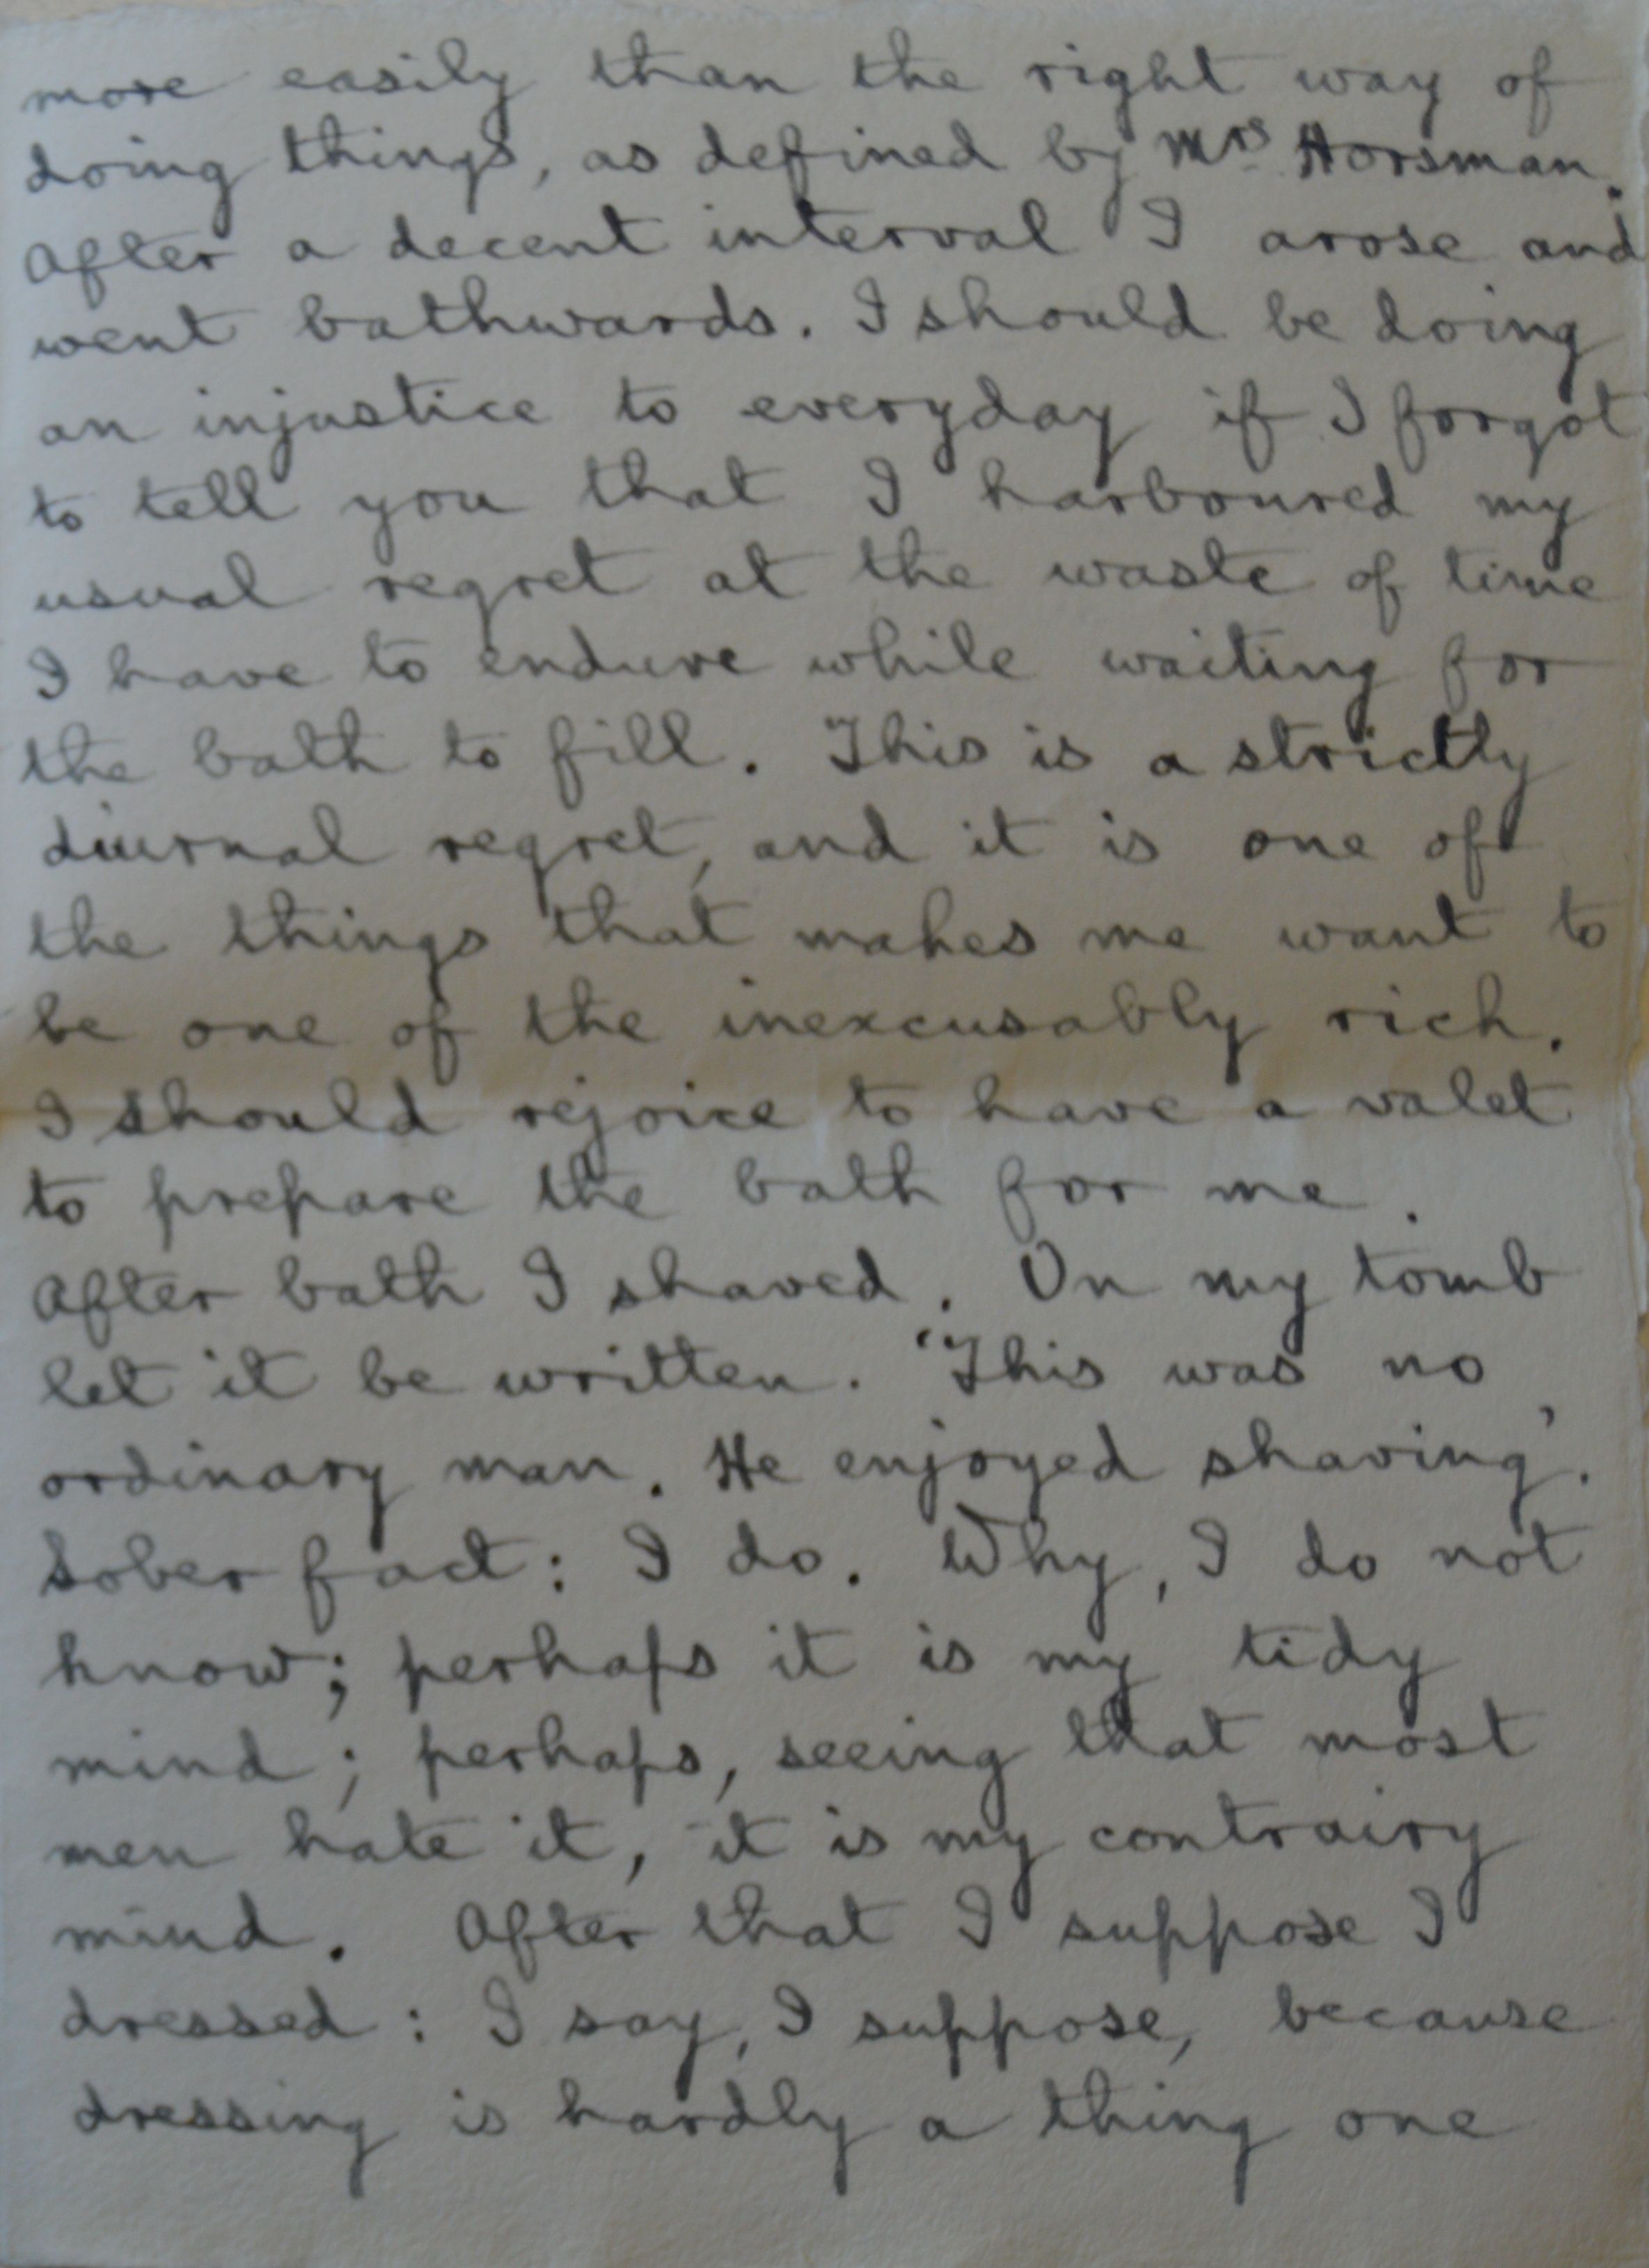 more easily than the right way of
doing things, as defined by Mrs Horsman.
After a decent interval I arose and
went bathwards. I should be doing
an injustice to everyday if I forgot
to tell you that I harboured my
usual regret at the waste of time
I have to endure while waiting for
the bath to fill. This is a strictly
diurnal regret, and it is one of
the things that makes me want to
be one of the inexcusably rich.
I should rejoice to have a valet
to prepare the bath for me.
After bath I shaved. On my tomb
let it be written. 'This was no
ordinary man. He enjoyed shaving'.
Sober fact: I do. Why, I do not
know; perhaps it is my tidy
mind; perhaps, seeing that most
men hate it, it is my contrairy
mind. After that I suppose I
dressed: I say, I suppose, because
dressing is hardly a thing one